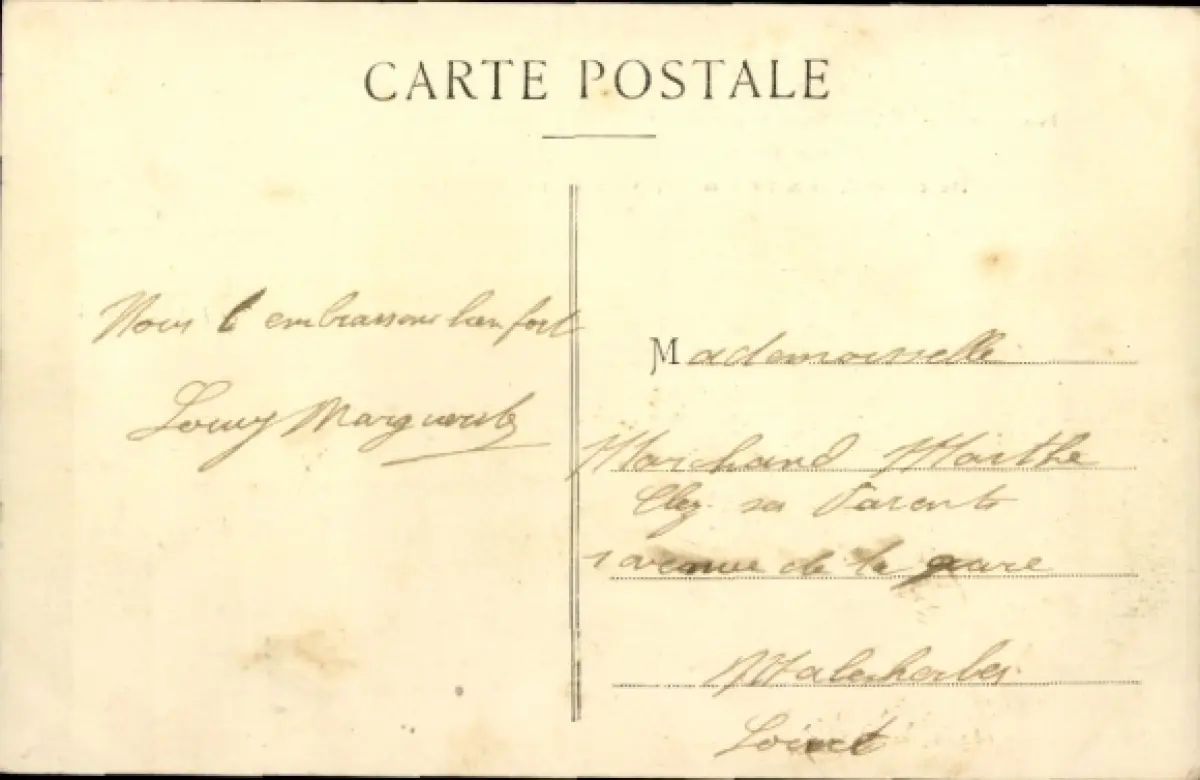 CARTE POSTALE
Nous t embrassons bien fort
Marguerite
Mademoisselle
Marchand Marthe
Chez ses Parents
1 avenue de la gare
Malesherbes
Loiret